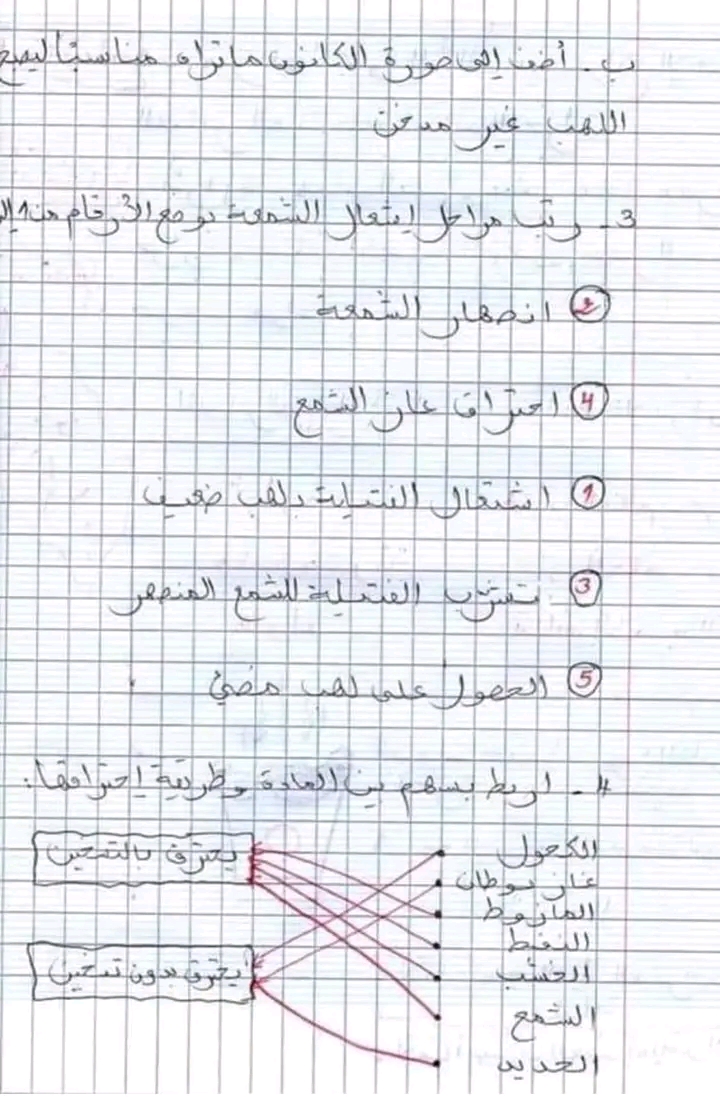 ب - أضف إلى صورة الكانون ما تراه مناسبا ليصبح
اللهب غير مدخن
3 - رتب مراحل إشعال الشمعة بوضع الأرقام من 1 إلى
2 انصهار الشمعة
4 احتراق غاز الشمع
1 اشتعال الفتيلة بلهب ضعيف
3 تشرب الفتيلة للشمع المنصهر
5 الحصول على لهب مضيئ
4 - اربط بسهم بين المادة وطريقة إحتراقها:
الكحول
يحترق بالتدخين
غاز بوطان
المازوط
النفط
الخشب
يحترق بدون تدخين
الشمع
الحديد